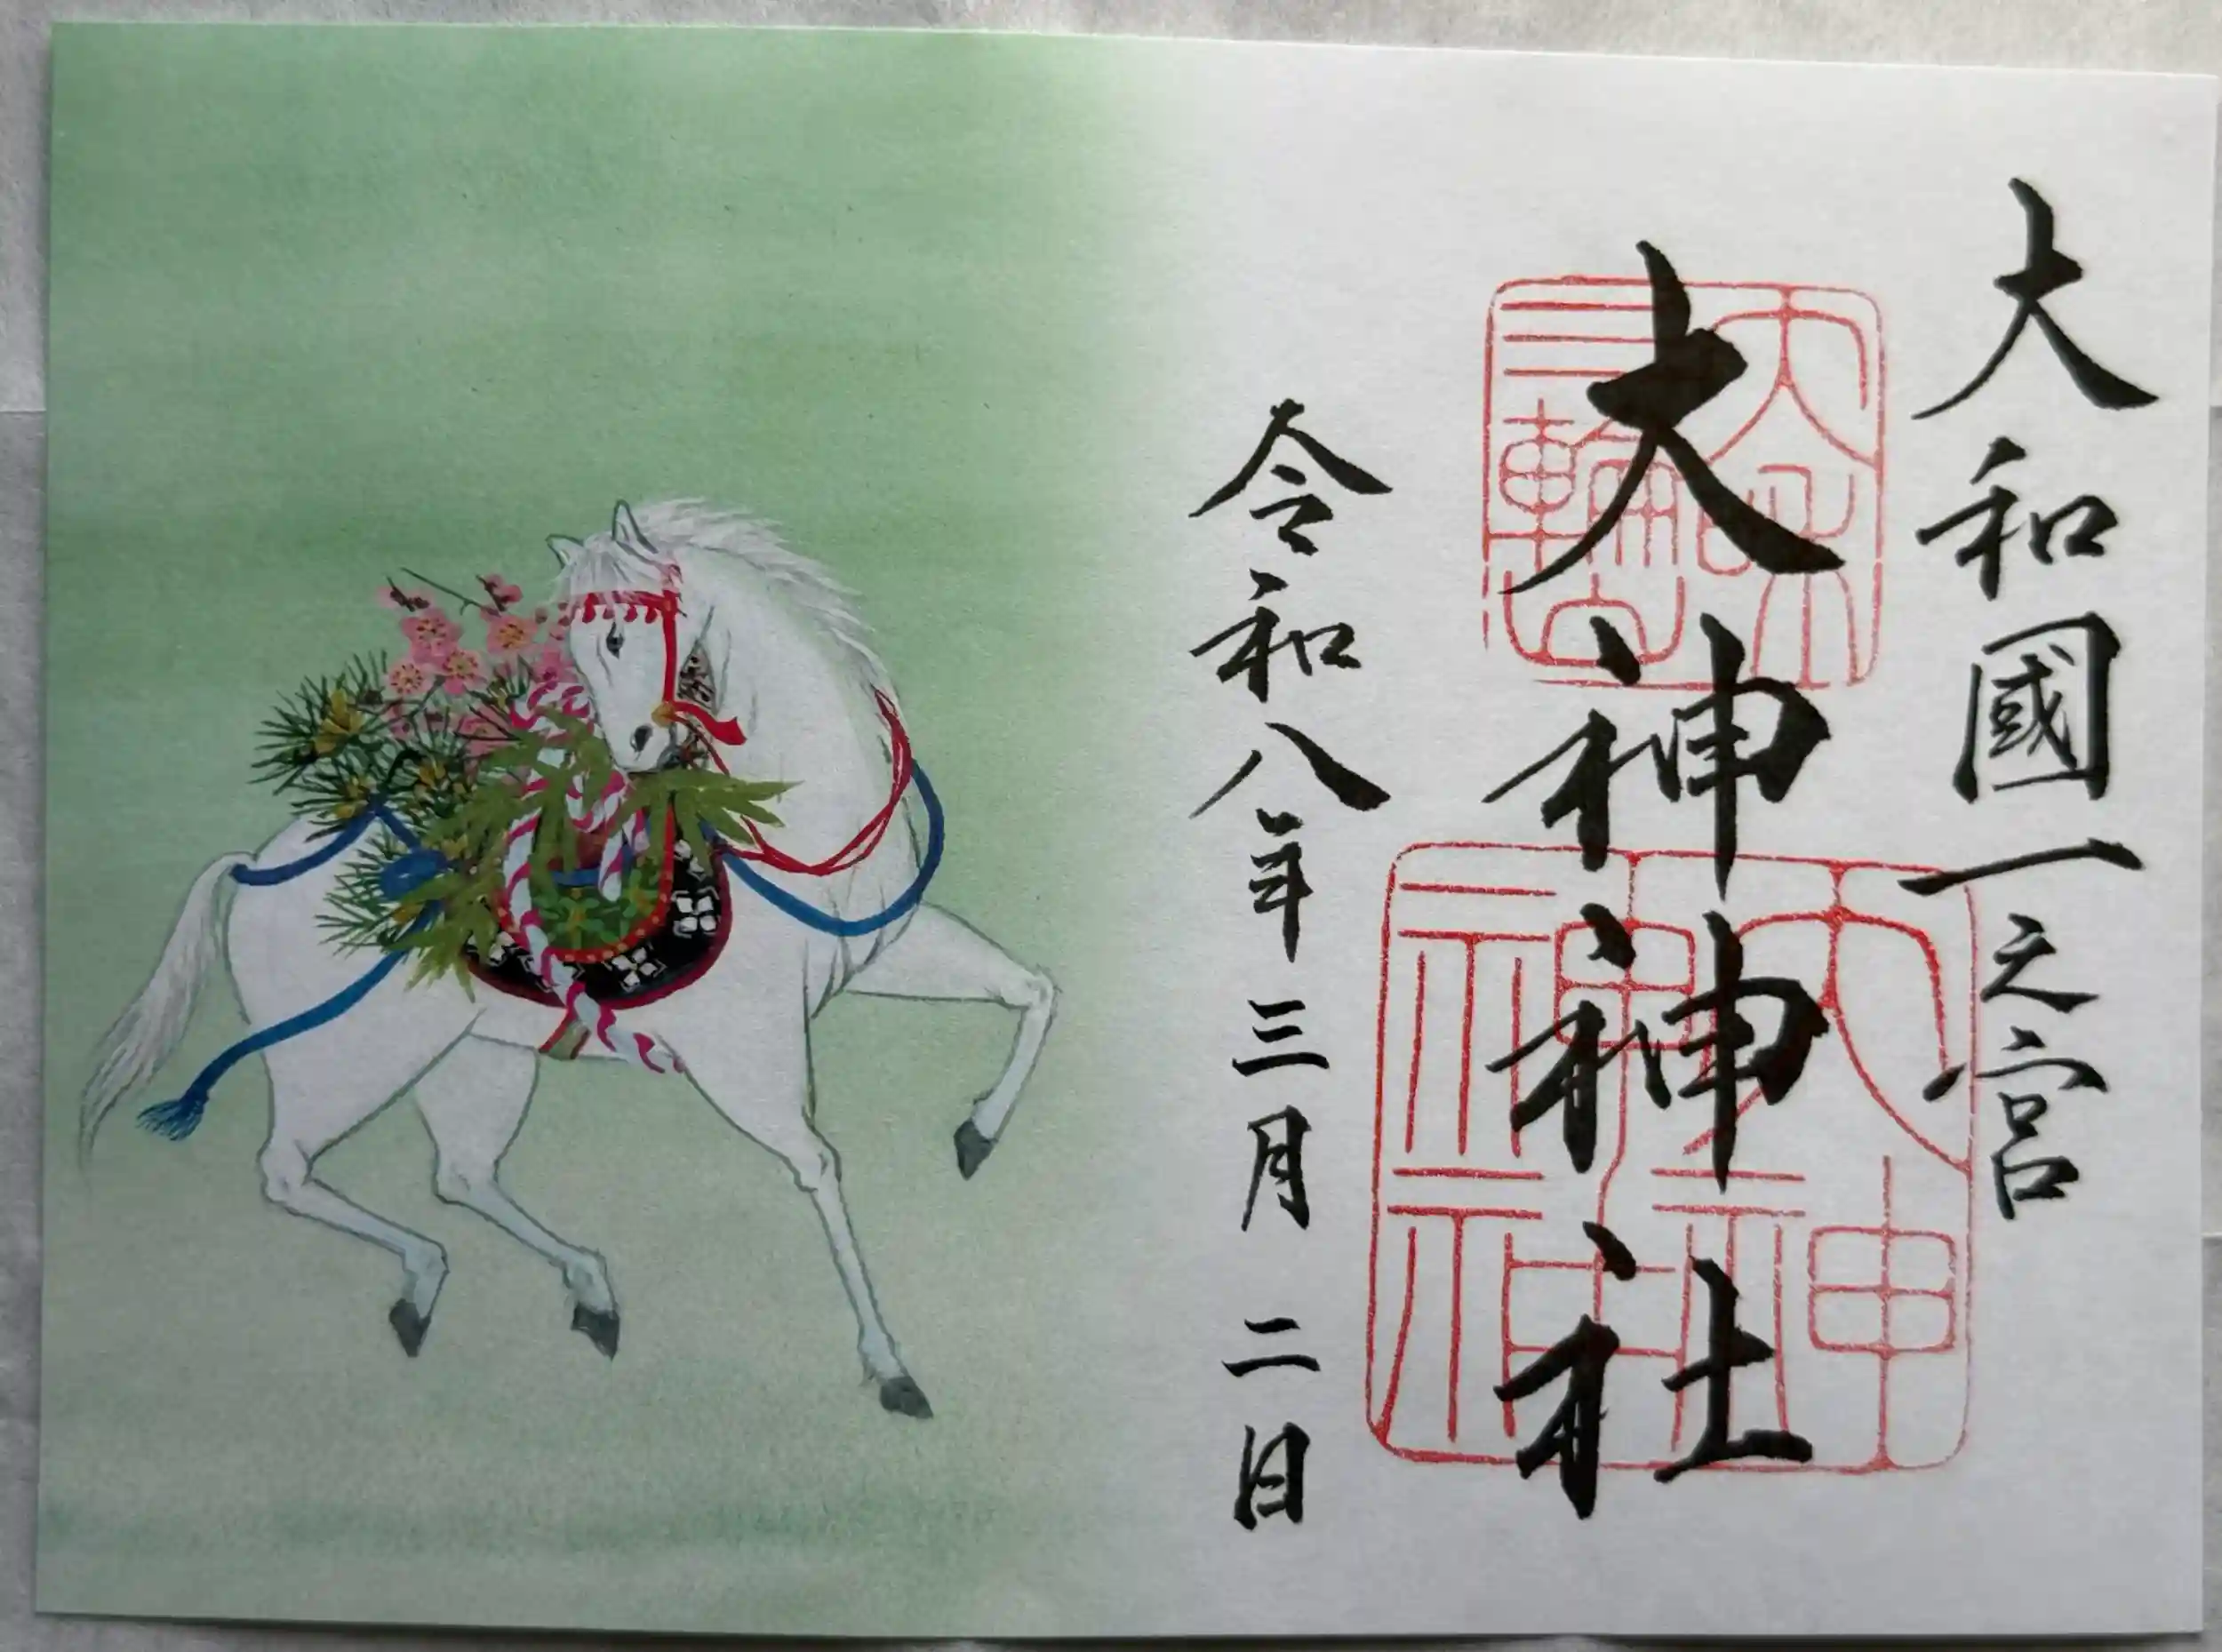 大和國一之宮
大神神社
大和
三輪山
大神
神社
令和八年三月二日